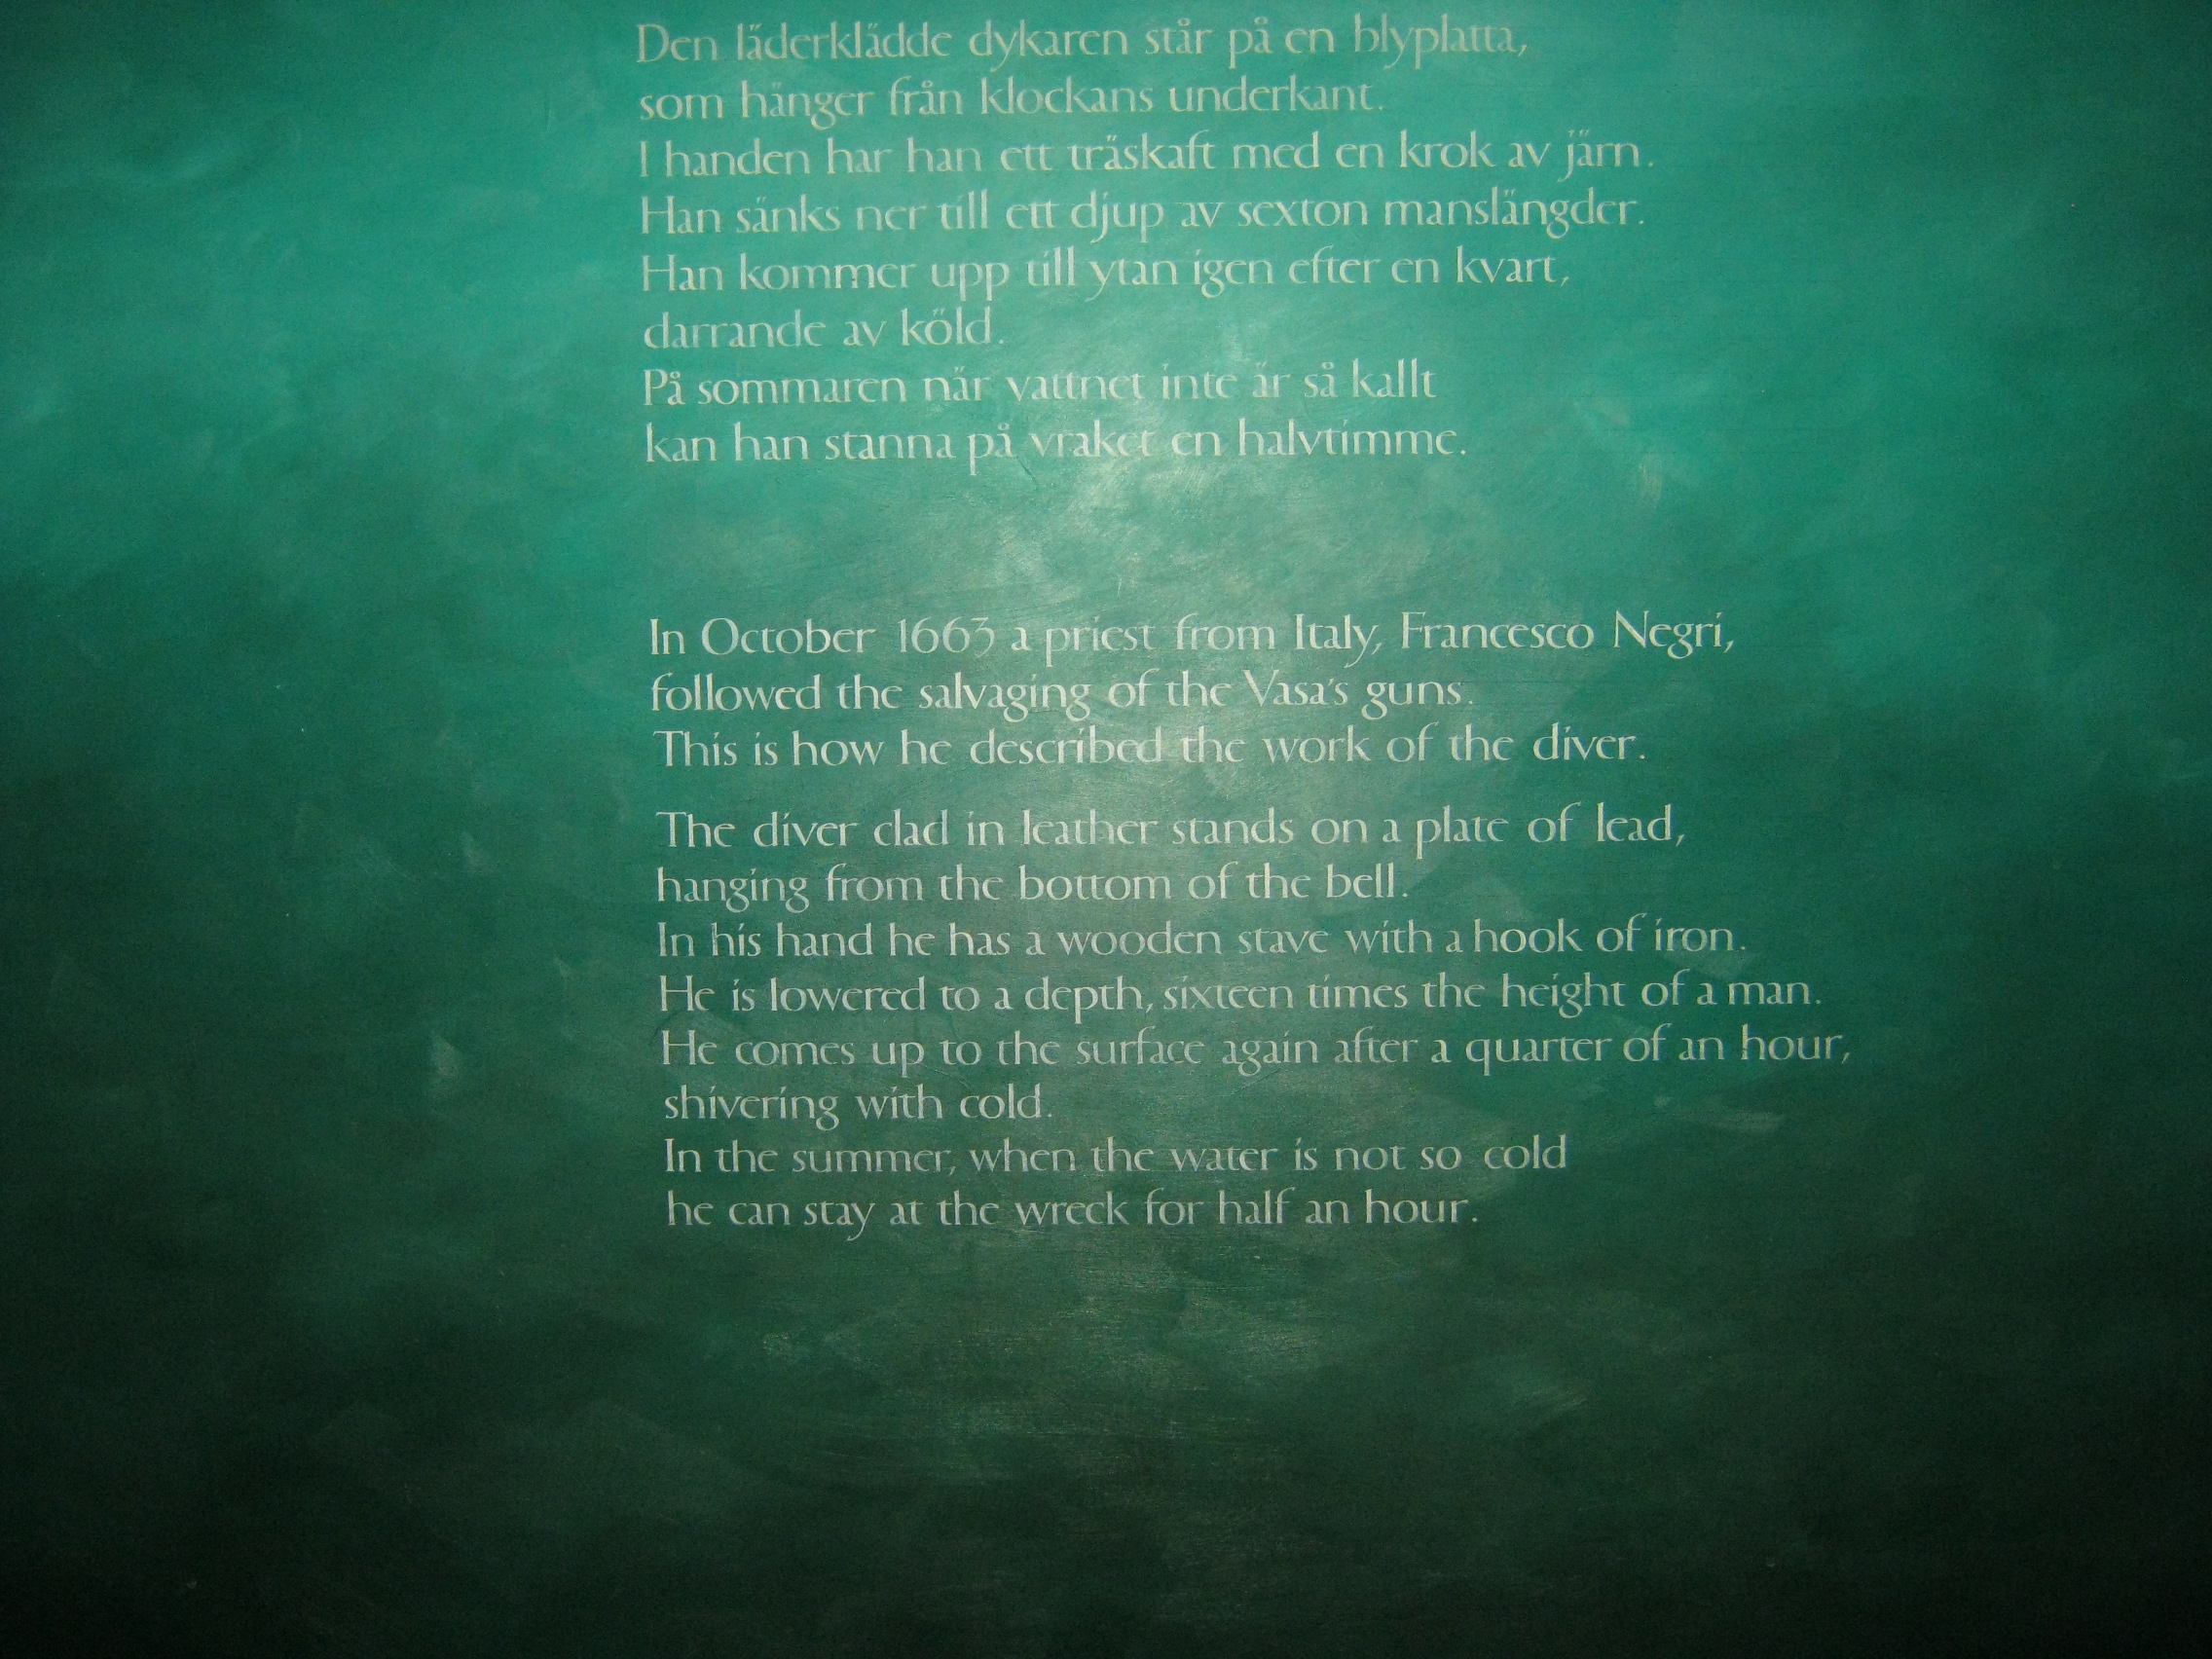 Den läderklädde dykaren står på en blyplatta,
som hänger från klockans underkant.
I handen har han ett träskaft med en krok av järn.
Han sänks ner till ett djup av sexton manslängder.
Han kommer upp till ytan igen efter en kvart,
darrande av köld.
På sommaren när vattnet inte är så kallt
kan han stanna på vraket en halvtimme.
In October 1663 a priest from Italy, Francesco Negri,
followed the salvaging of the Vasa's guns.
This is how he described the work of the diver.
The diver clad in leather stands on a plate of lead,
hanging from the bottom of the bell.
In his hand he has a wooden stave with a hook of iron.
He is lowered to a depth, sixteen times the height of a man.
He comes up to the surface again after a quarter of an hour,
shivering with cold.
In the summer, when the water is not so cold
he can stay at the wreck for half an hour.